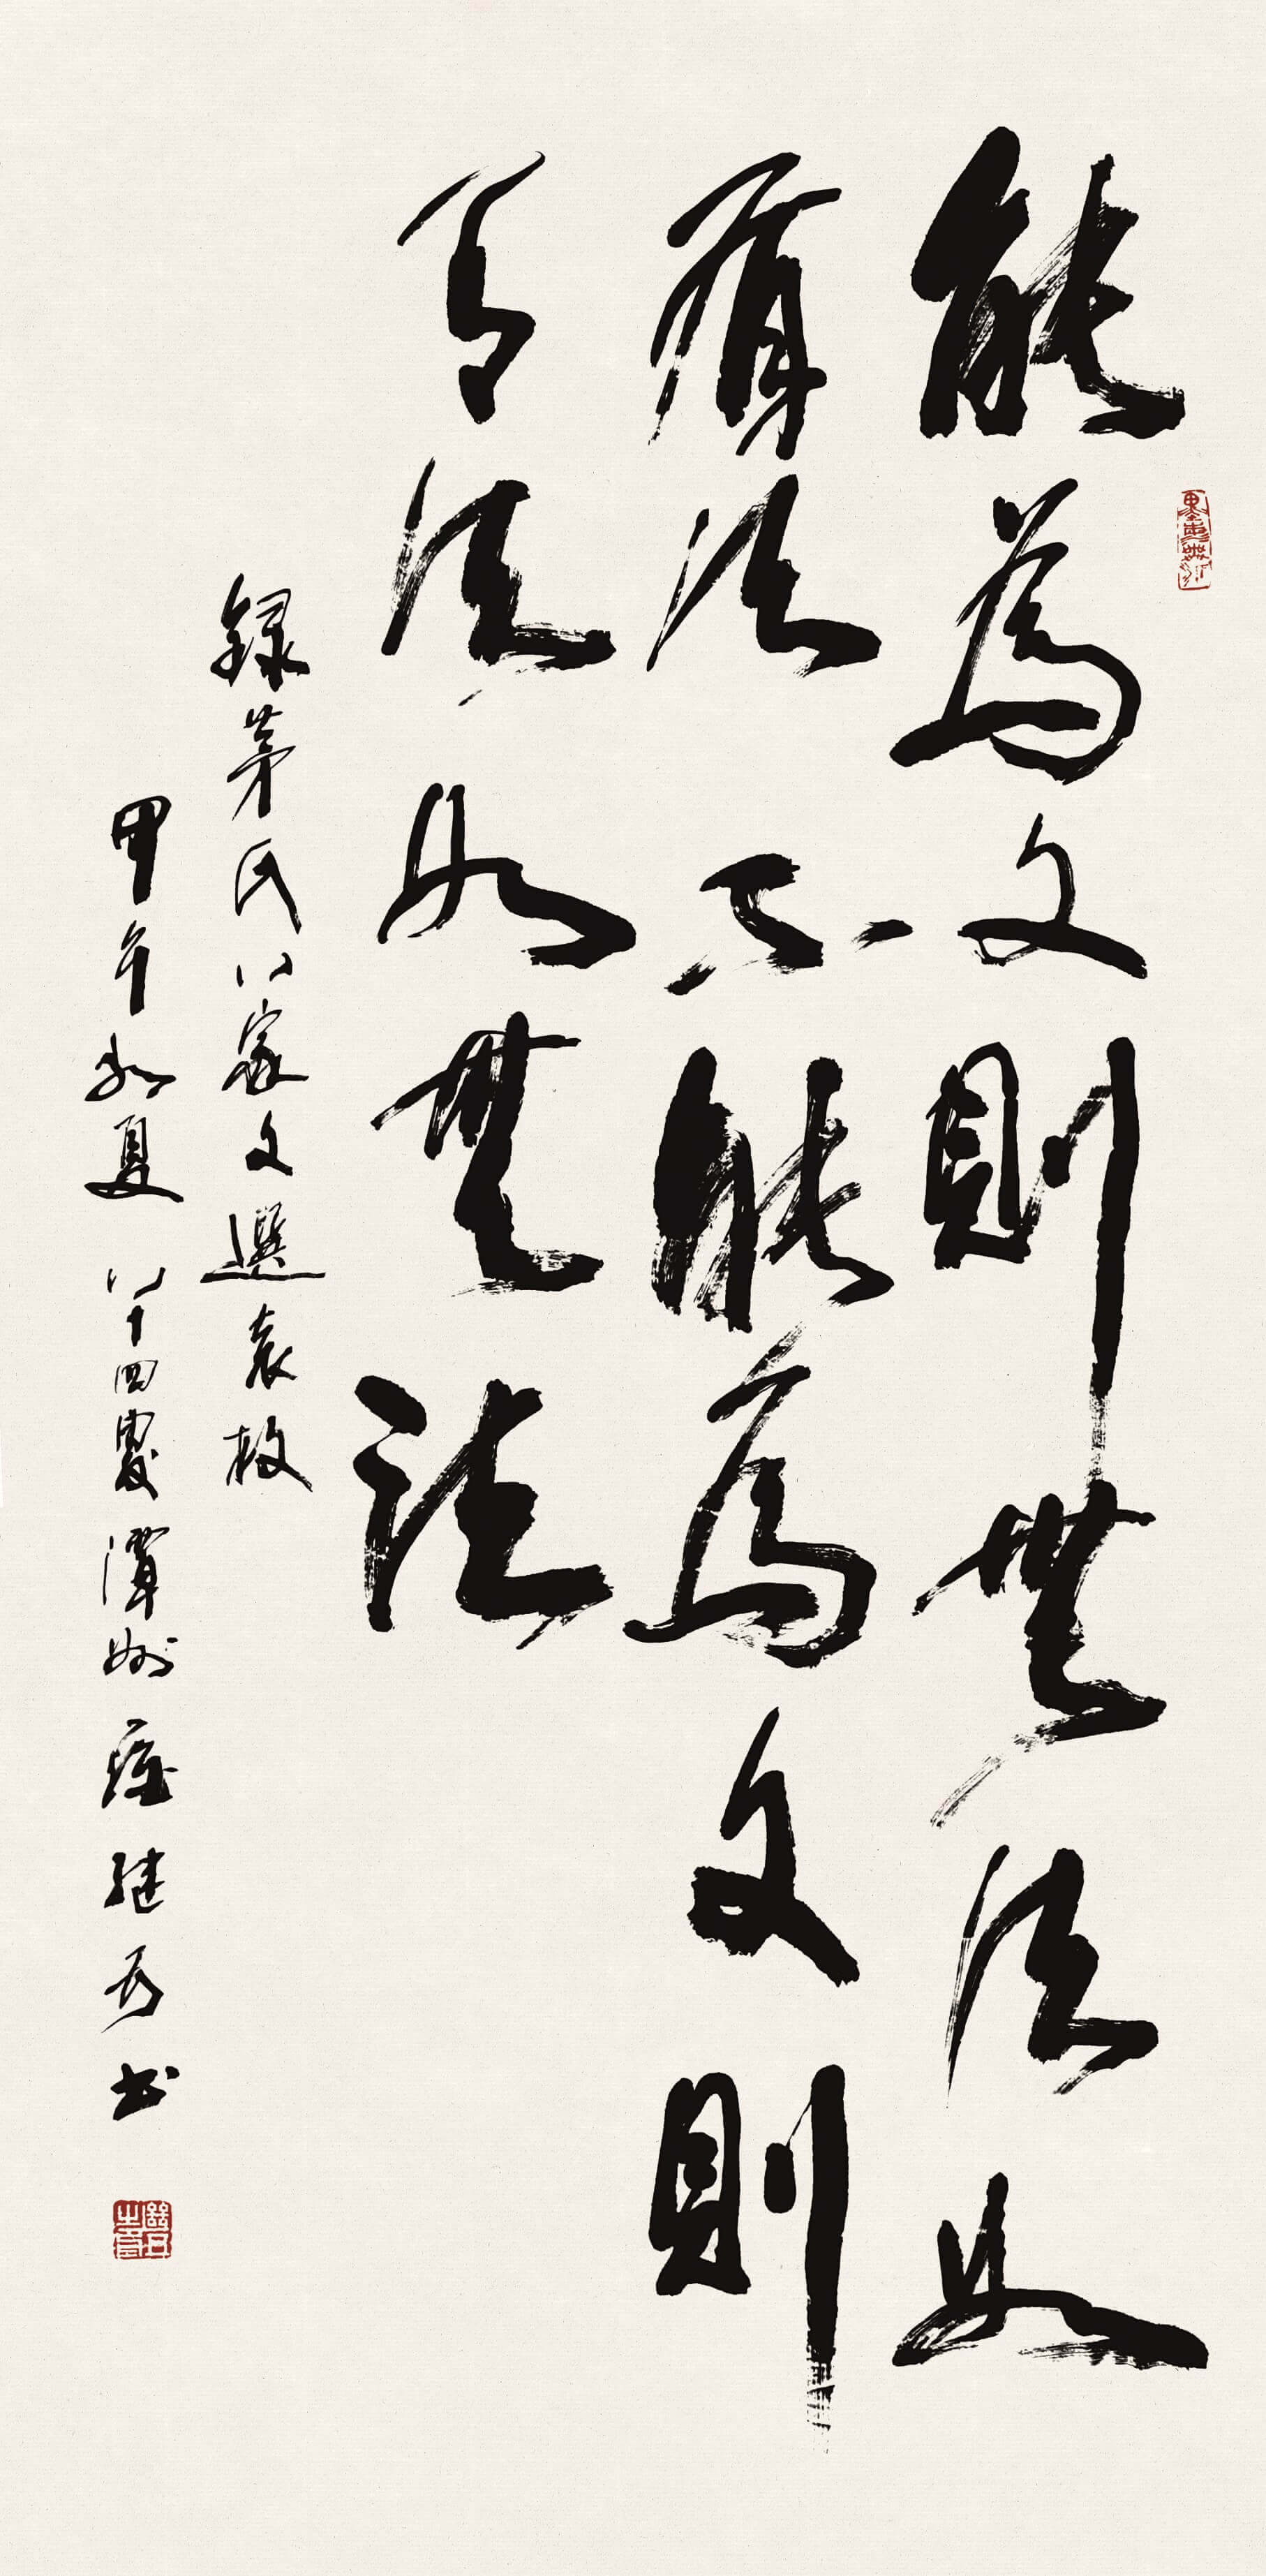 能為文則無法如
有法不能為文則
有法如無法
錄茅氏八家文選袁枚
甲午初夏八十四叟潭州繼書